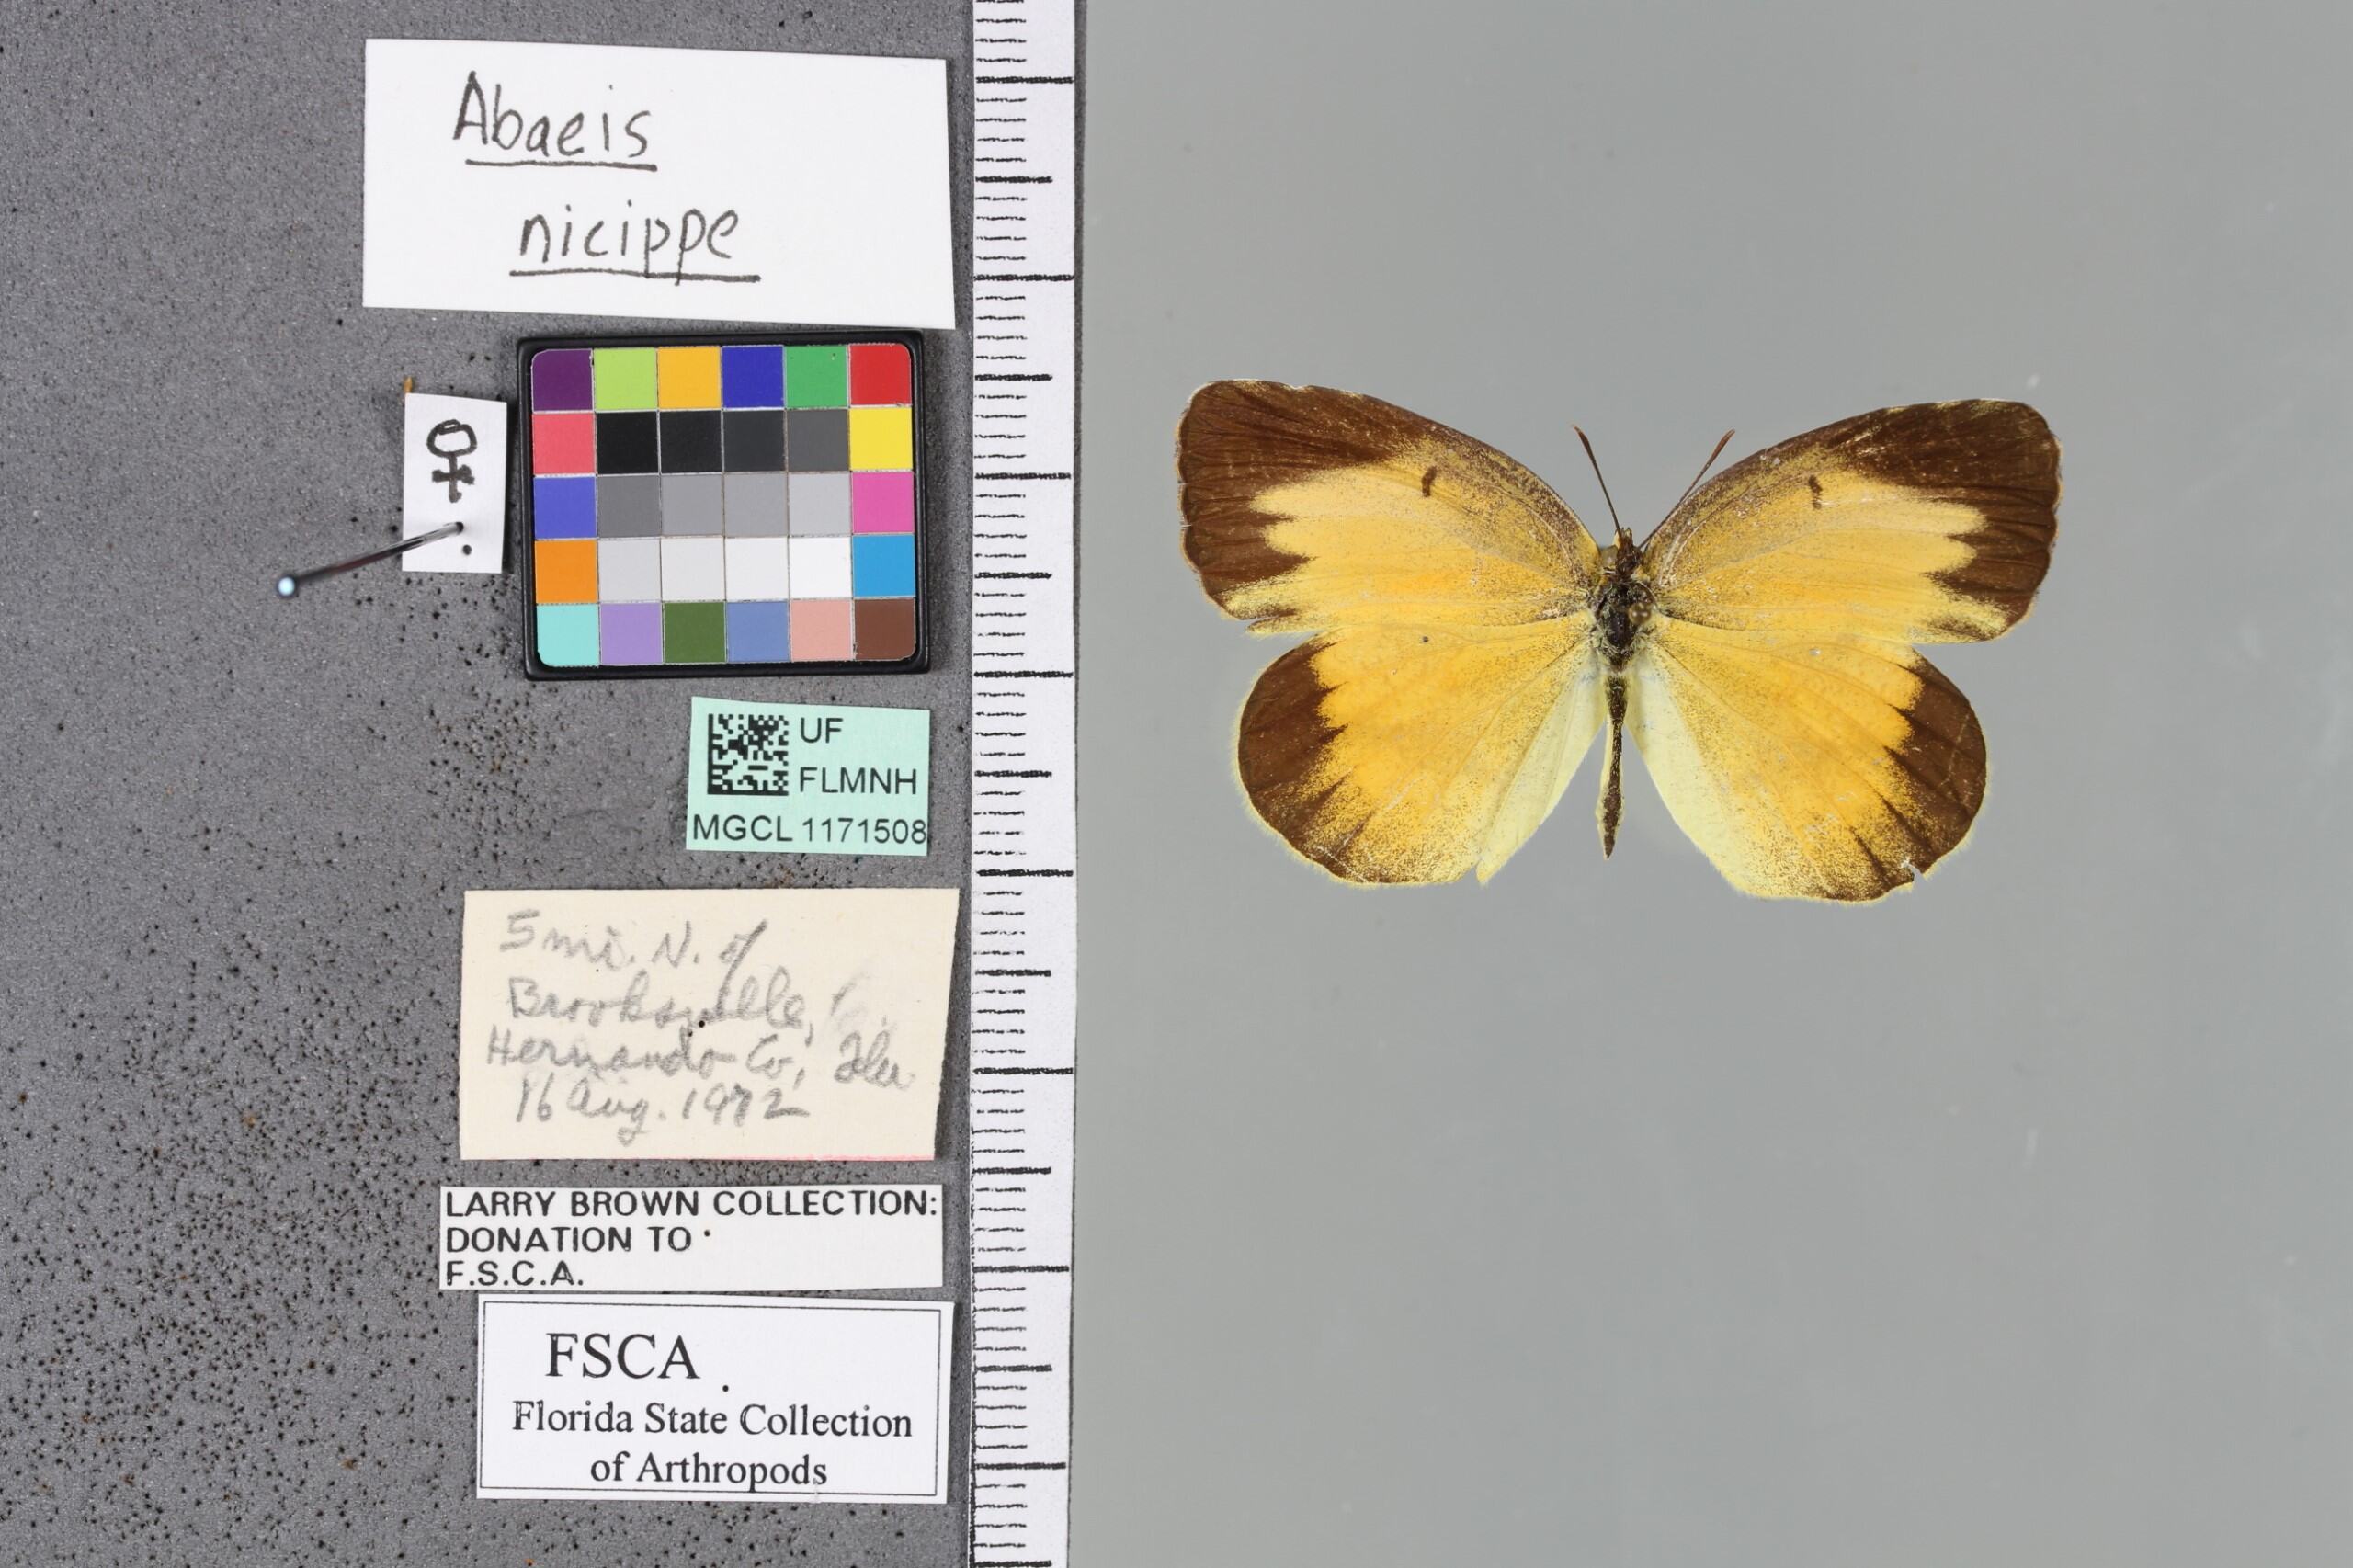 Abaeis
nicippe
♀
UF
FLMNH
MGCL 1171508
5 mi. N. of
Brooksville,
Hernando Co, Fla
16 Aug. 1972
LARRY BROWN COLLECTION:
DONATION TO
F.S.C.A.
FSCA
Florida State Collection
of Arthropods